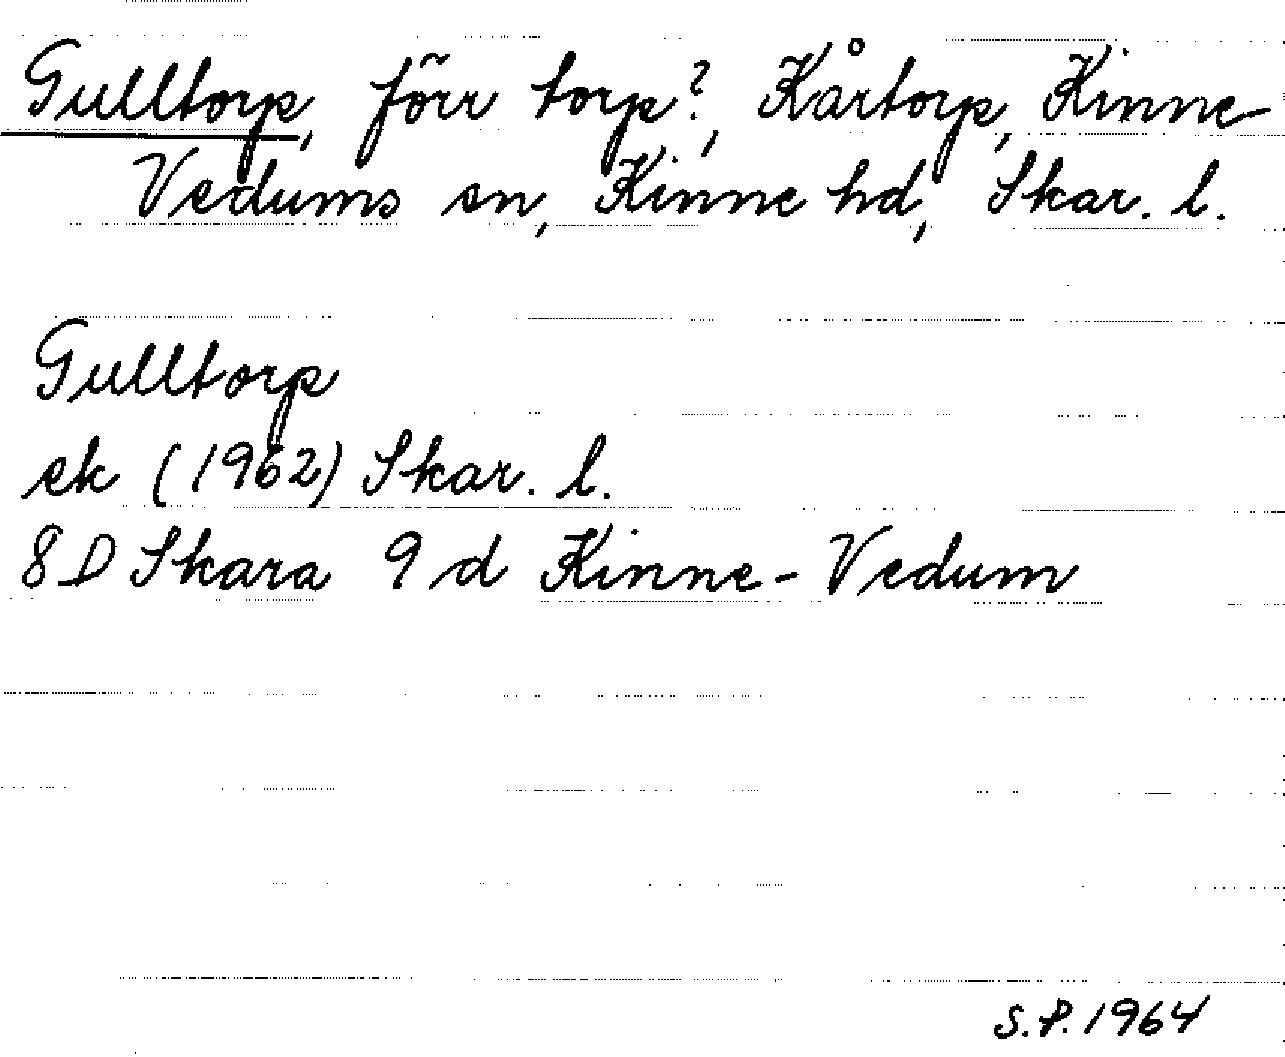 Gulltorp, förr torp?, Kårtorp, Kinne-
Vedums sn, Kinne hd, Skar. l.
Gulltorp
ek (1962) Skar. l.
8D Skara 9d Kinne-Vedum
S.P. 1964